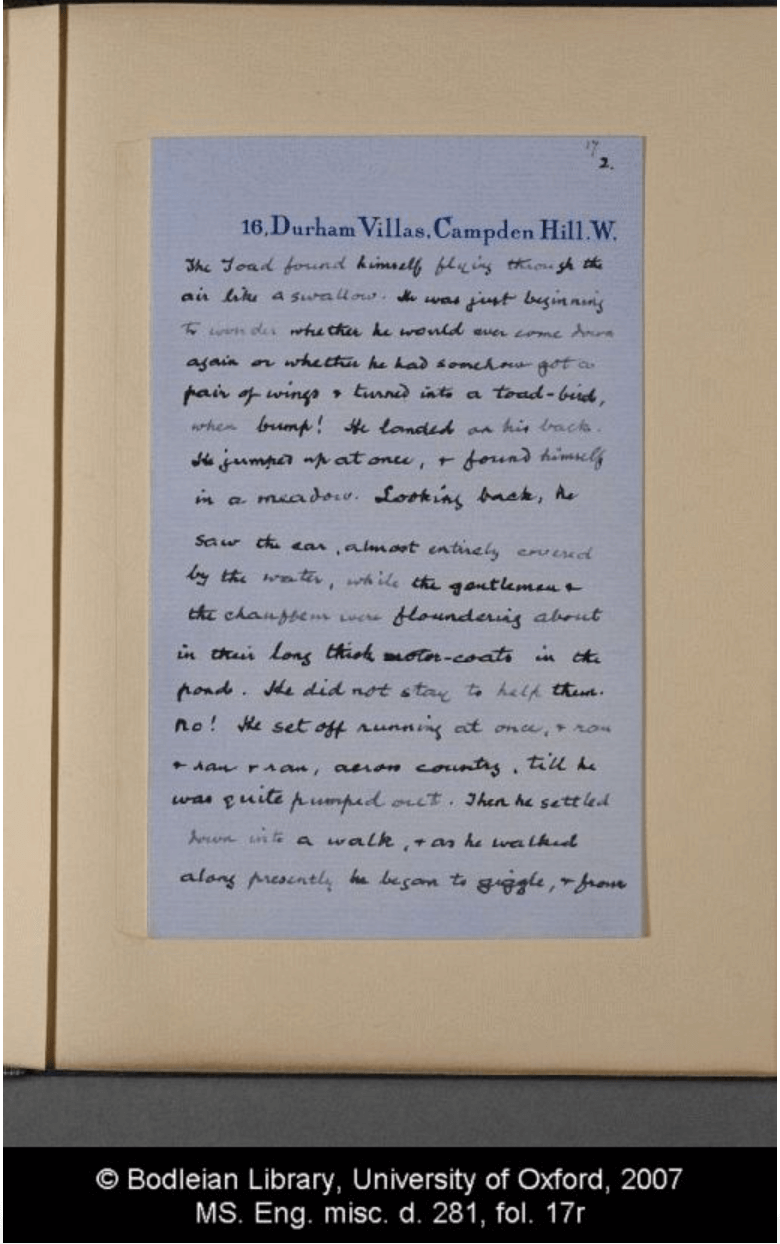 17
2.
16, Durham Villas, Campden Hill. W.
The Toad found himself flying through the
air like a swallow. He was just beginning
to wonder whether he would ever come down
again or whether he had somehow got a
pair of wings & turned into a toad-bird,
when bump! He landed on his back.
He jumped up at once, & found himself
in a meadow. Looking back, he
saw the car, almost entirely covered
by the water, while the gentlemen &
the chauffeur were floundering about
in their long thick motor-coats in the
pond. He did not stay to help them.
no! He set off running at once, & ran
& ran & ran, across country, till he
was quite pumped out. Then he settled
down into a walk, & as he walked
along presently he began to giggle, & from
© Bodleian Library, University of Oxford, 2007
MS. Eng. misc. d. 281, fol. 17r